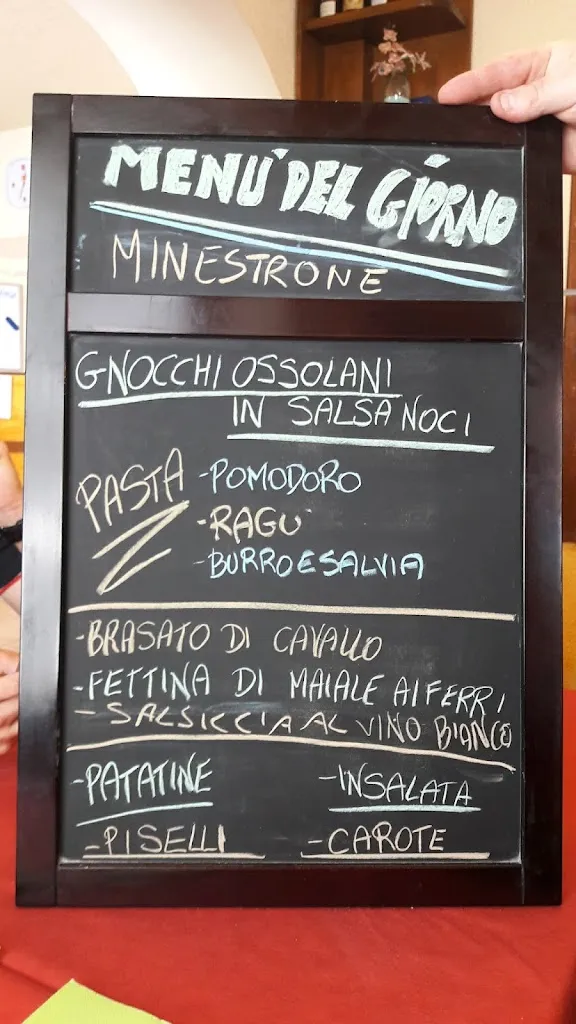 MENU' DEL GIORNO
MINESTRONE
GNOCCHI OSSOLANI
IN SALSA NOCI
PASTA -POMODORO
-RAGU
-BURRO E SALVIA
-BRASATO DI CAVALLO
-FETTINA DI MAIALE AI FERRI
-SALSICCIA AL VINO BIANCO
-PATATINE -INSALATA
-PISELLI -CAROTE